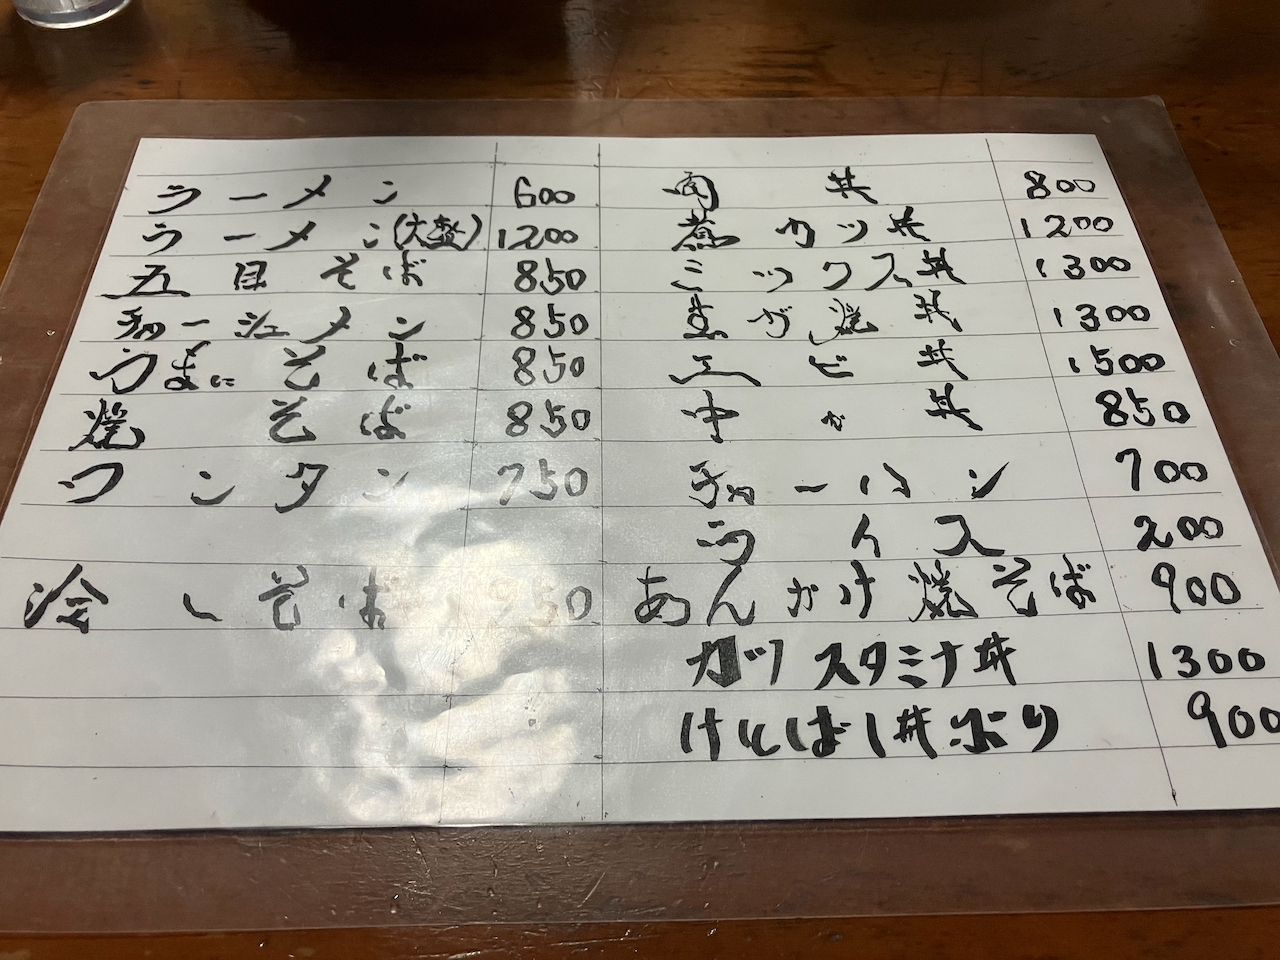 ラーメン 600
ラーメン(大盛) 1200
五目そば 850
チャーシューメン 850
うまにそば 850
焼そば 850
ワンタン 750
冷しそば 950
肉丼 800
煮カツ丼 1200
ミックス丼 1300
生が焼丼 1300
エビ丼 1500
中か丼 850
チャーハン 700
ライス 200
あんかけ焼そば 900
カツスタミナ丼 1300
けんばし丼ぶり 900